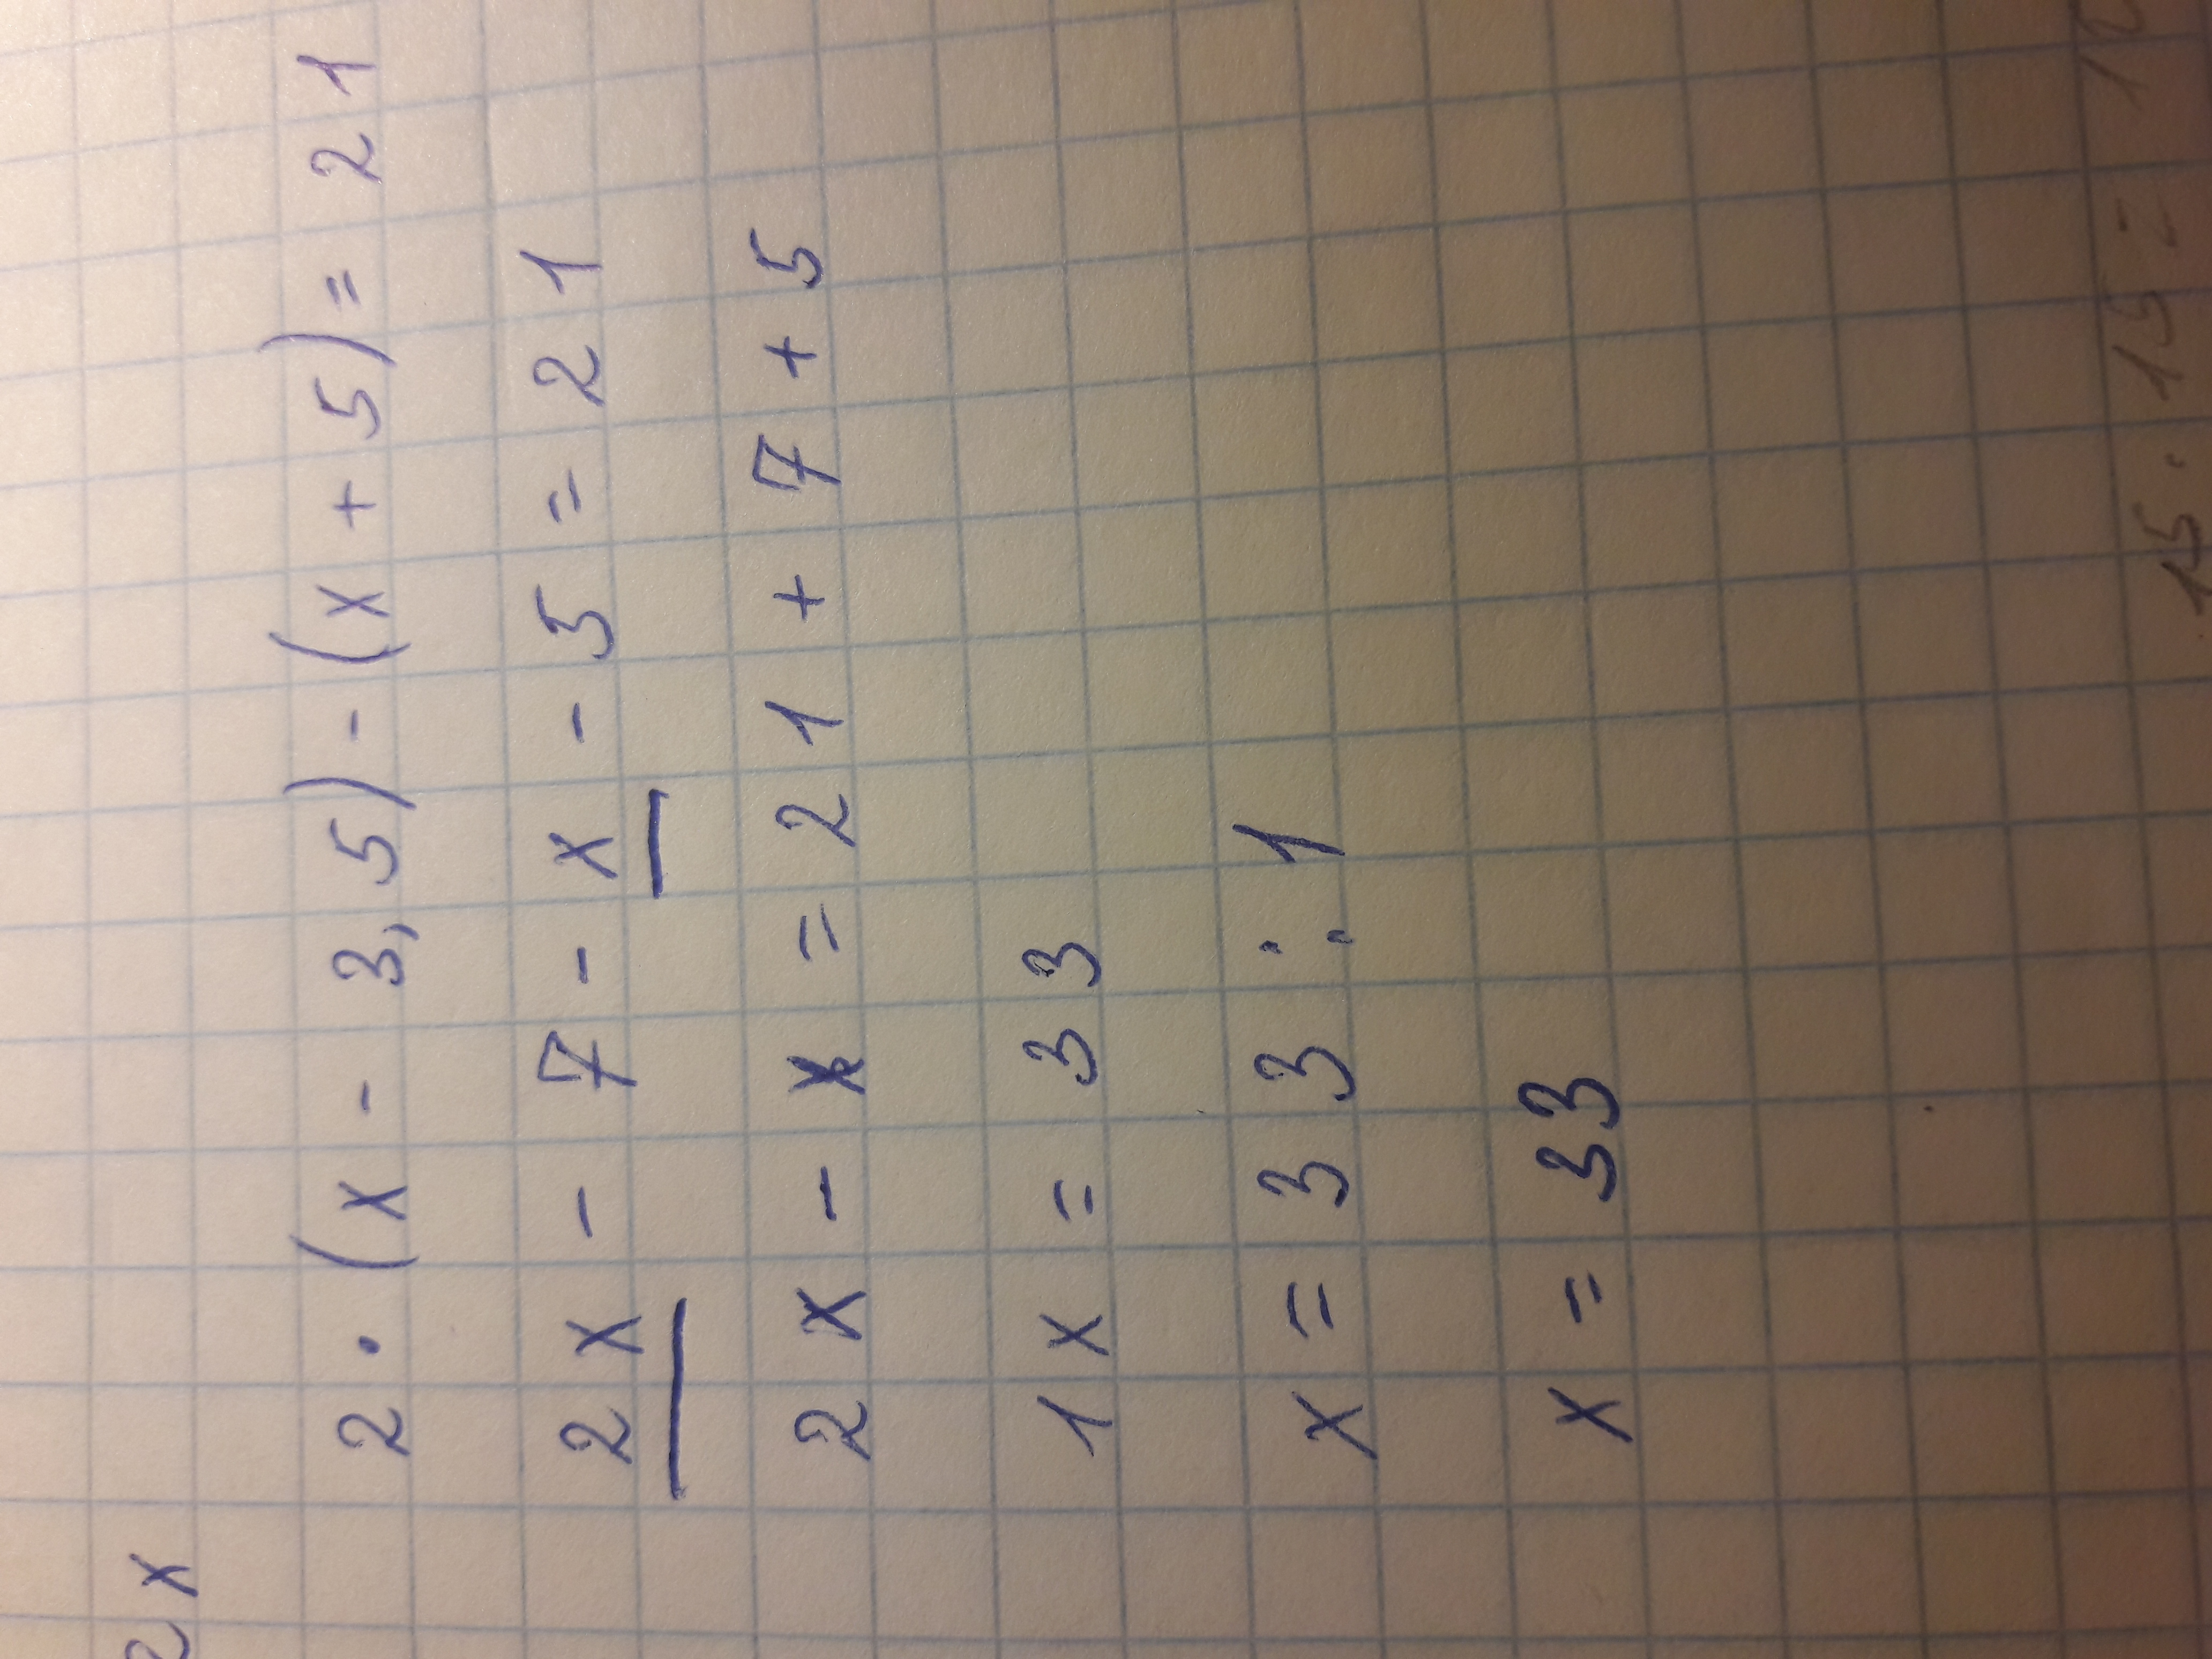 2x
2 · (x - 3,5) - (x + 5) = 21
2x - 7 - x - 5 = 21
2x - x = 21 + 7 + 5
1x = 33
x = 33 : 1
x = 33
15 · 15 =